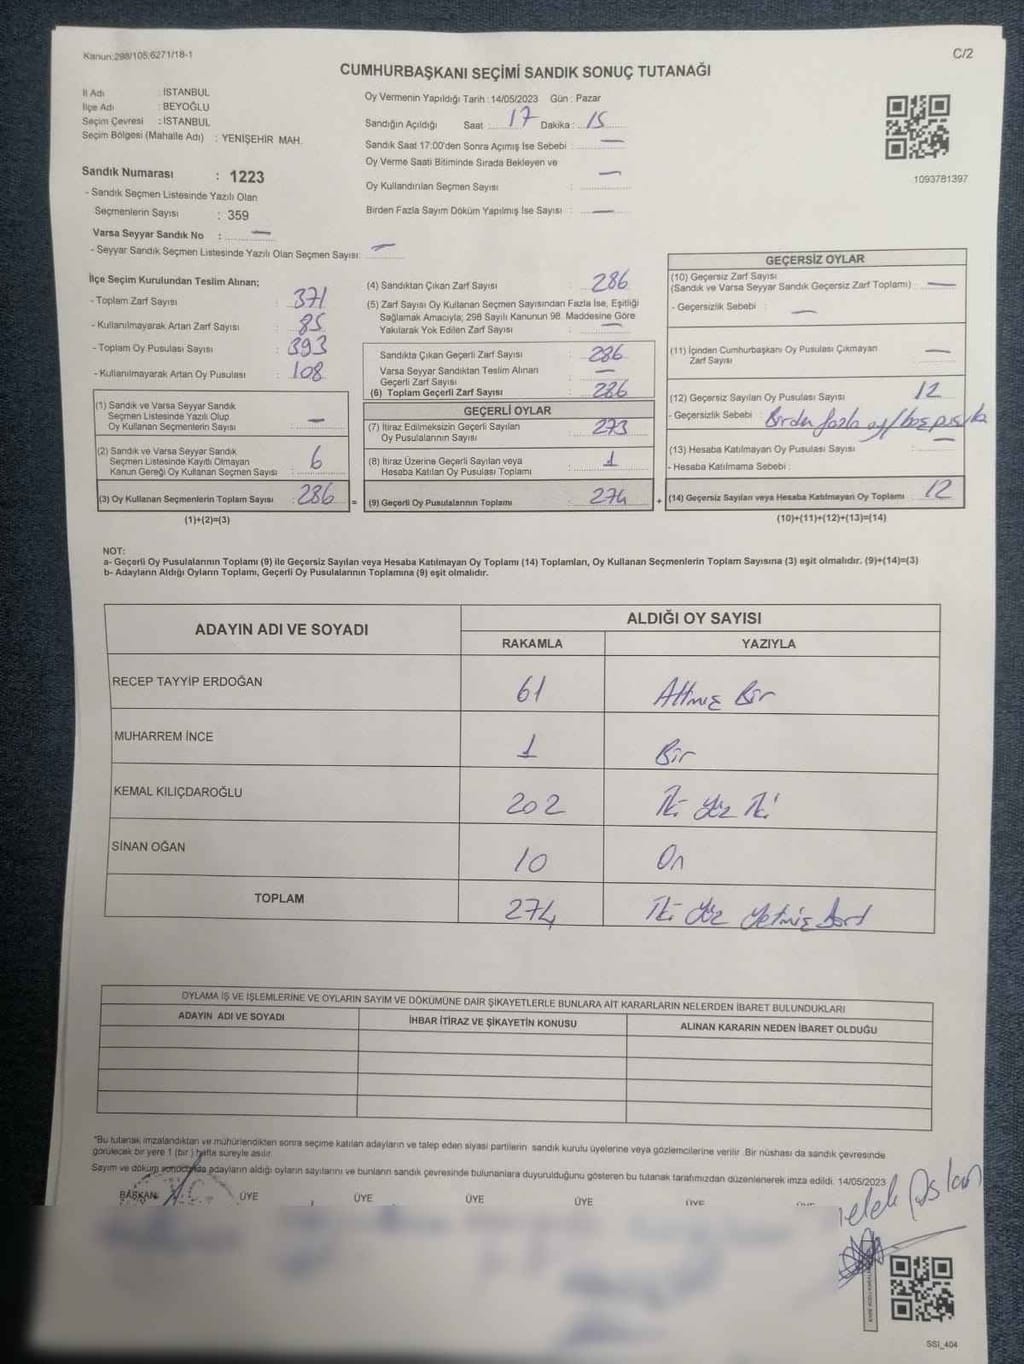 Kanun:298/105;6271/18-1
C/2
CUMHURBAŞKANI SEÇİMİ SANDIK SONUÇ TUTANAĞI
İl Adı : İSTANBUL
İlçe Adı : BEYOĞLU
Seçim Çevresi : İSTANBUL
Seçim Bölgesi (Mahalle Adı) : YENİŞEHİR MAH.
Oy Vermenin Yapıldığı Tarih : 14/05/2023 Gün : Pazar
Sandığın Açıldığı Saat : 17 Dakika : 15
Sandık Saat 17:00'den Sonra Açımış İse Sebebi : —
Oy Verme Saati Bitiminde Sırada Bekleyen ve
Oy Kullandırılan Seçmen Sayısı : —
Birden Fazla Sayım Döküm Yapılmış İse Sayısı : —
1093781397
Sandık Numarası : 1223
- Sandık Seçmen Listesinde Yazılı Olan
Seçmenlerin Sayısı : 359
Varsa Seyyar Sandık No : —
- Seyyar Sandık Seçmen Listesinde Yazılı Olan Seçmen Sayısı: —
İlçe Seçim Kurulundan Teslim Alınan;
- Toplam Zarf Sayısı : 371
- Kullanılmayarak Artan Zarf Sayısı : 85
- Toplam Oy Pusulası Sayısı : 393
- Kullanılmayarak Artan Oy Pusulası : 108
(1) Sandık ve Varsa Seyyar Sandık
Seçmen Listesinde Yazılı Olup
Oy Kullanan Seçmenlerin Sayısı : —
(2) Sandık ve Varsa Seyyar Sandık
Seçmen Listesinde Kayıtlı Olmayan
Kanun Gereği Oy Kullanan Seçmen Sayısı : 6
(3) Oy Kullanan Seçmenlerin Toplam Sayısı : 286 =
(1)+(2)=(3)
(4) Sandıktan Çıkan Zarf Sayısı : 286
(5) Zarf Sayısı Oy Kullanan Seçmen Sayısından Fazla İse, Eşitliği
Sağlamak Amacıyla; 298 Sayılı Kanunun 98. Maddesine Göre
Yakılarak Yok Edilen Zarf Sayısı : —
Sandıkta Çıkan Geçerli Zarf Sayısı : 286
Varsa Seyyar Sandıktan Teslim Alınan
Geçerli Zarf Sayısı : —
(6) Toplam Geçerli Zarf Sayısı : 286
GEÇERLİ OYLAR
(7) İtiraz Edilmeksizin Geçerli Sayılan
Oy Pusulalarının Sayısı : 273
(8) İtiraz Üzerine Geçerli Sayılan veya
Hesaba Katılan Oy Pusulası Toplamı : 1
(9) Geçerli Oy Pusulalarının Toplamı : 274 +
GEÇERSİZ OYLAR
(10) Geçersiz Zarf Sayısı
(Sandık ve Varsa Seyyar Sandık Geçersiz Zarf Toplamı) : —
- Geçersizlik Sebebi : —
(11) İçinden Cumhurbaşkanı Oy Pusulası Çıkmayan
Zarf Sayısı : —
(12) Geçersiz Sayılan Oy Pusulası Sayısı : 12
- Geçersizlik Sebebi : Birden fazla oy/boş pusula
(13) Hesaba Katılmayan Oy Pusulası Sayısı : —
- Hesaba Katılmama Sebebi :
(14) Geçersiz Sayılan veya Hesaba Katılmayan Oy Toplamı : 12
(10)+(11)+(12)+(13)=(14)
NOT:
a- Geçerli Oy Pusulalarının Toplamı (9) ile Geçersiz Sayılan veya Hesaba Katılmayan Oy Toplamı (14) Toplamları, Oy Kullanan Seçmenlerin Toplam Sayısına (3) eşit olmalıdır. (9)+(14)=(3)
b- Adayların Aldığı Oyların Toplamı, Geçerli Oy Pusulalarının Toplamına (9) eşit olmalıdır.
ADAYIN ADI VE SOYADI
ALDIĞI OY SAYISI
RAKAMLA YAZIYLA
RECEP TAYYİP ERDOĞAN 61 Altmış Bir
MUHARREM İNCE 1 Bir
KEMAL KILIÇDAROĞLU 202 İki yüz İki
SİNAN OĞAN 10 On
TOPLAM 274 İki yüz yetmiş dört
OYLAMA İŞ VE İŞLEMLERİNE VE OYLARIN SAYIM VE DÖKÜMÜNE DAİR ŞİKAYETLERLE BUNLARA AİT KARARLARIN NELERDEN İBARET BULUNDUKLARI
ADAYIN ADI VE SOYADI İHBAR İTİRAZ VE ŞİKAYETİN KONUSU ALINAN KARARIN NEDEN İBARET OLDUĞU
"Bu tutanak imzalandıktan ve mühürlendikten sonra seçime katılan adayların ve talep eden siyasi partilerin sandık kurulu üyelerine veya gözlemcilerine verilir. Bir nüshası da sandık çevresinde
görülecek bir yere 1 (bir) hafta süreyle asılır.
Sayım ve döküm sonucunda adayların aldığı oyların sayılarını ve bunların sandık çevresinde bulunanlara duyurulduğunu gösteren bu tutanak tarafımızdan düzenlenerek imza edildi. 14/05/2023
BAŞKAN ÜYE ÜYE ÜYE ÜYE ÜYE
SSI_404